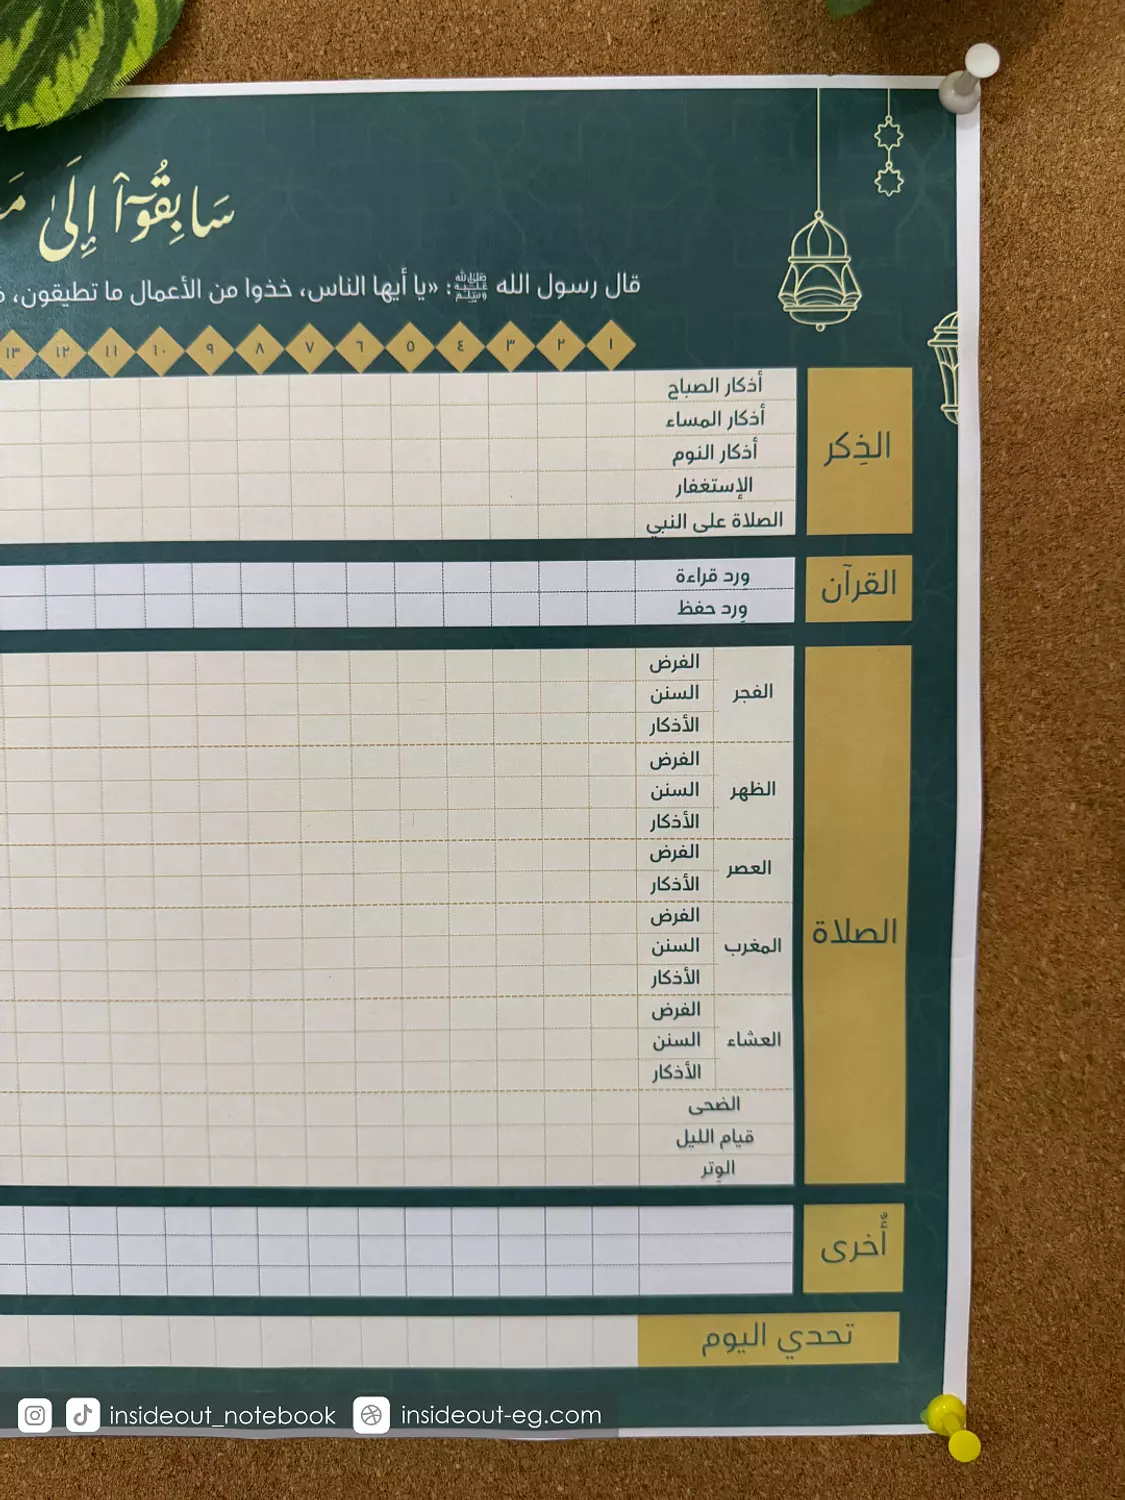 سَابِقُوٓا۟ إِلَىٰ
قال رسول الله ﷺ: «يا أيها الناس، خذوا من الأعمال ما تطيقون،
١ ٢ ٣ ٤ ٥ ٦ ٧ ٨ ٩ ١٠ ١١ ١٢ ١٣
الذِكر
أذكار الصباح
أذكار المساء
أذكار النوم
الإستغفار
الصلاة على النبي
القرآن
وِرد قراءة
وِرد حفظ
الصلاة
الفجر
الفرض
السنن
الأذكار
الظهر
الفرض
السنن
الأذكار
العصر
الفرض
الأذكار
المغرب
الفرض
السنن
الأذكار
العشاء
الفرض
السنن
الأذكار
الضحى
قيام الليل
الوِتر
أُخرى
تحدي اليوم
insideout_notebook insideout-eg.com